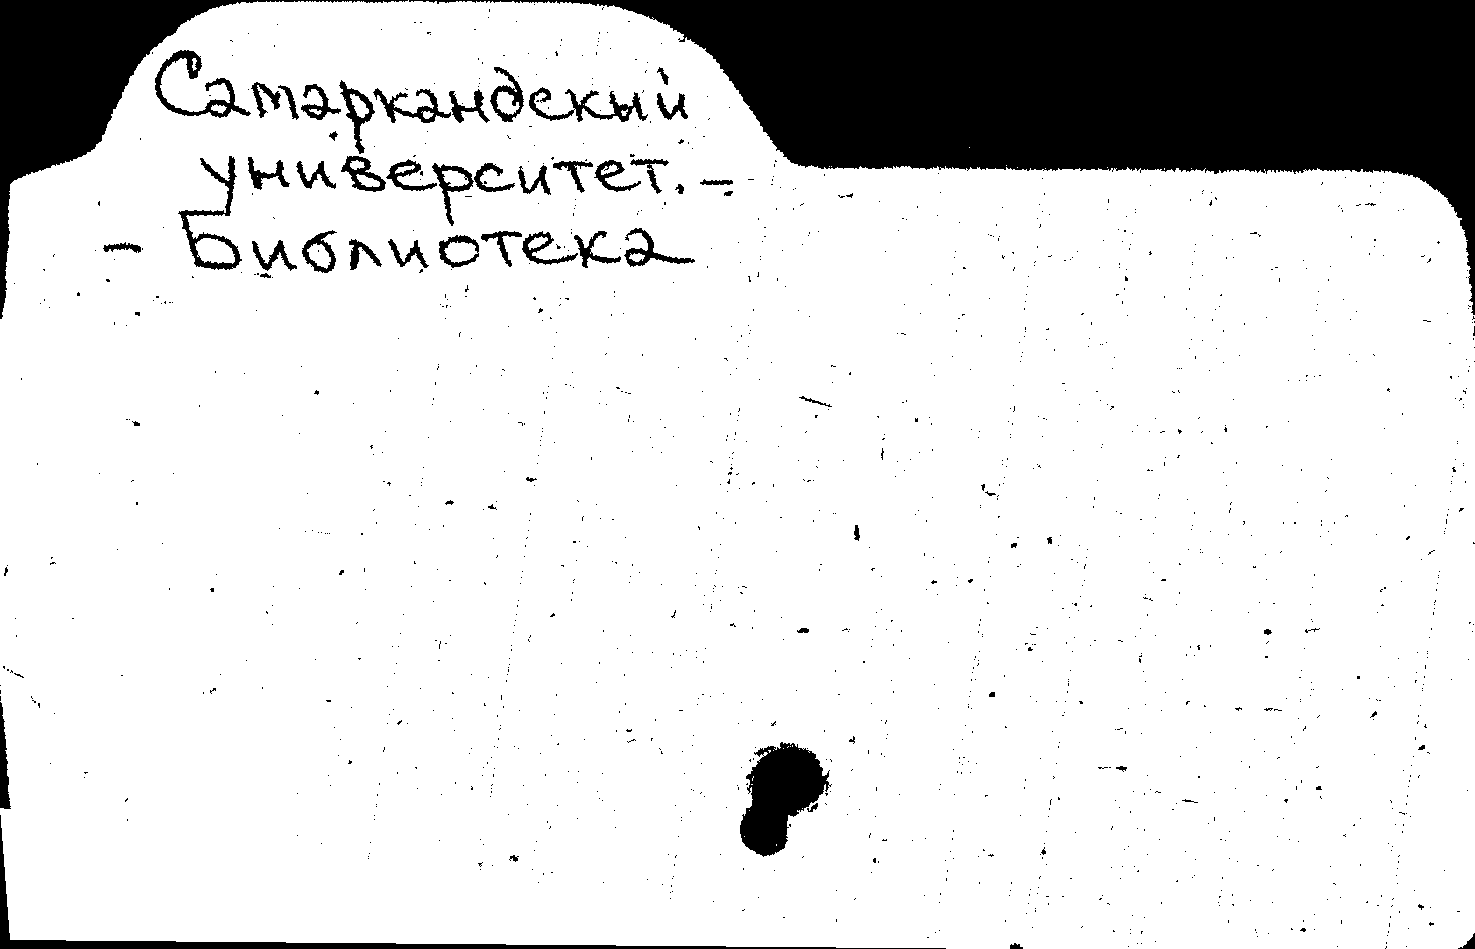 Самаркандскый
университет. –
– Библиотека